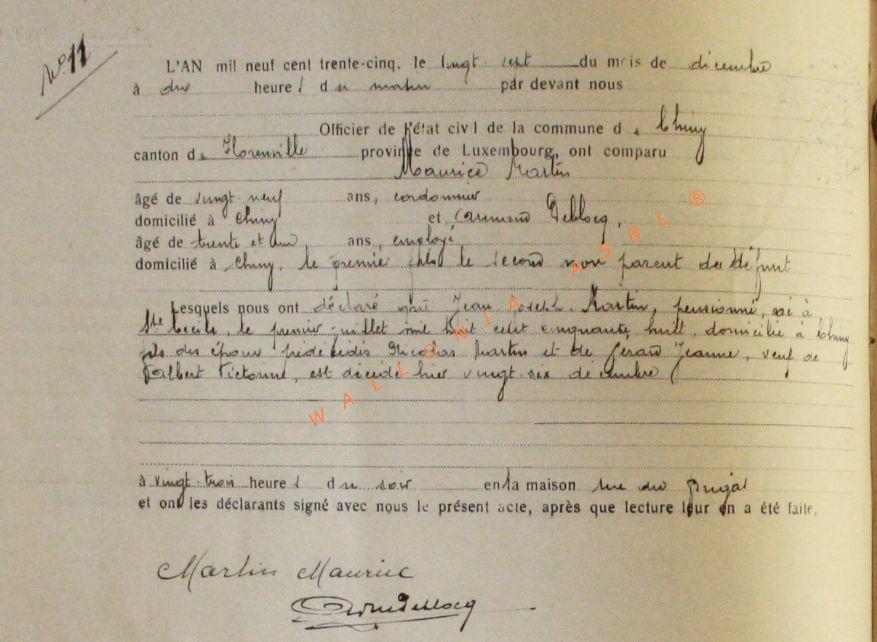 No 11
L'AN mil neuf cent trente-cinq, le vingt sept du mois de décembre
à dix heures du matin par devant nous
Officier de l'état civil de la commune de Chiny
canton de Florenville province de Luxembourg, ont comparu
Maurice Martin
âgé de vingt neuf ans, cordonnier
domicilié à Chiny et, Armand Deblocq,
âgé de trente et un, ans, employé,
domicilié à Chiny, le premier fils le second non parent du défunt
Lesquels nous ont déclaré que Jean Joseph Martin, pensionné, né à
Ste Cécile, le premier juillet mil huit cent cinquante huit, domicilié à Chiny
fils des époux prédécédés Nicolas Martin et de Gérard Jeanne, veuf de
Victorine, est décédé hier vingt-six décembre
à vingt-trois heures du soir en la maison rue du
et ont les déclarants signé avec nous le présent acte, après que lecture leur en a été faite.
Martin Maurice
Deblocq
WALLONIA ASBL ®